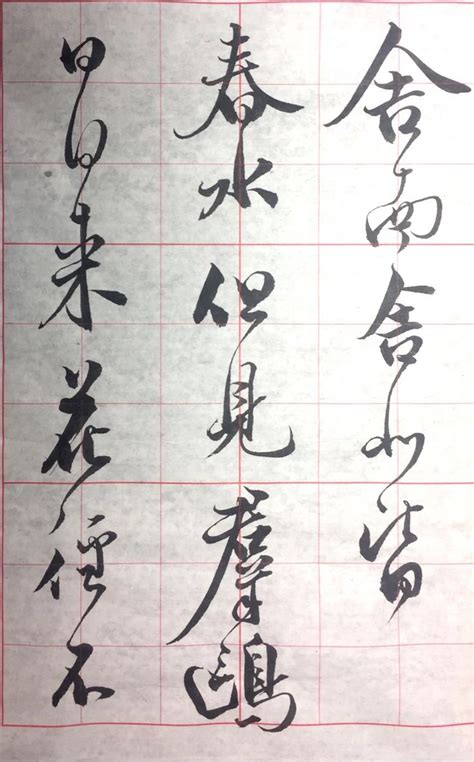 舍南舍北皆
春水但見羣鷗
日日來花徑不